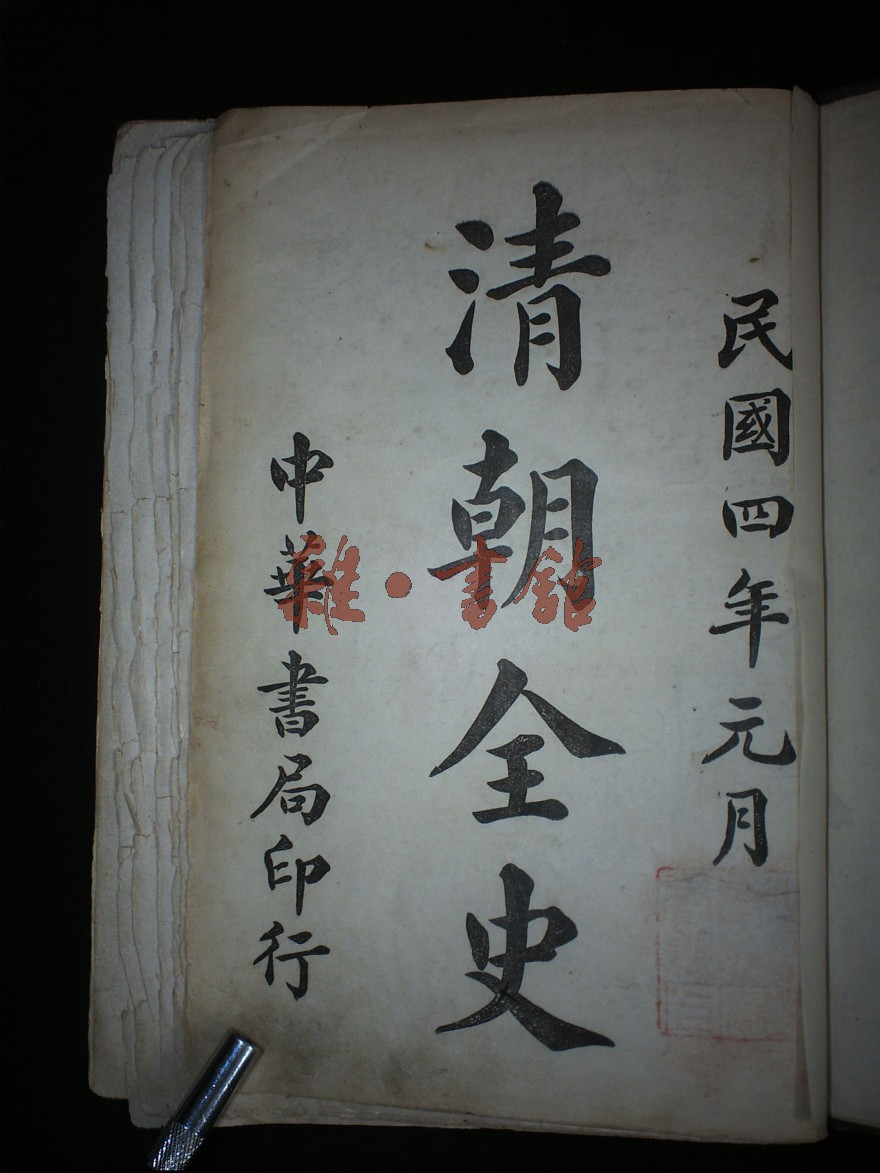 民國四年元月
清朝全史
中華書局印行
雜·書館